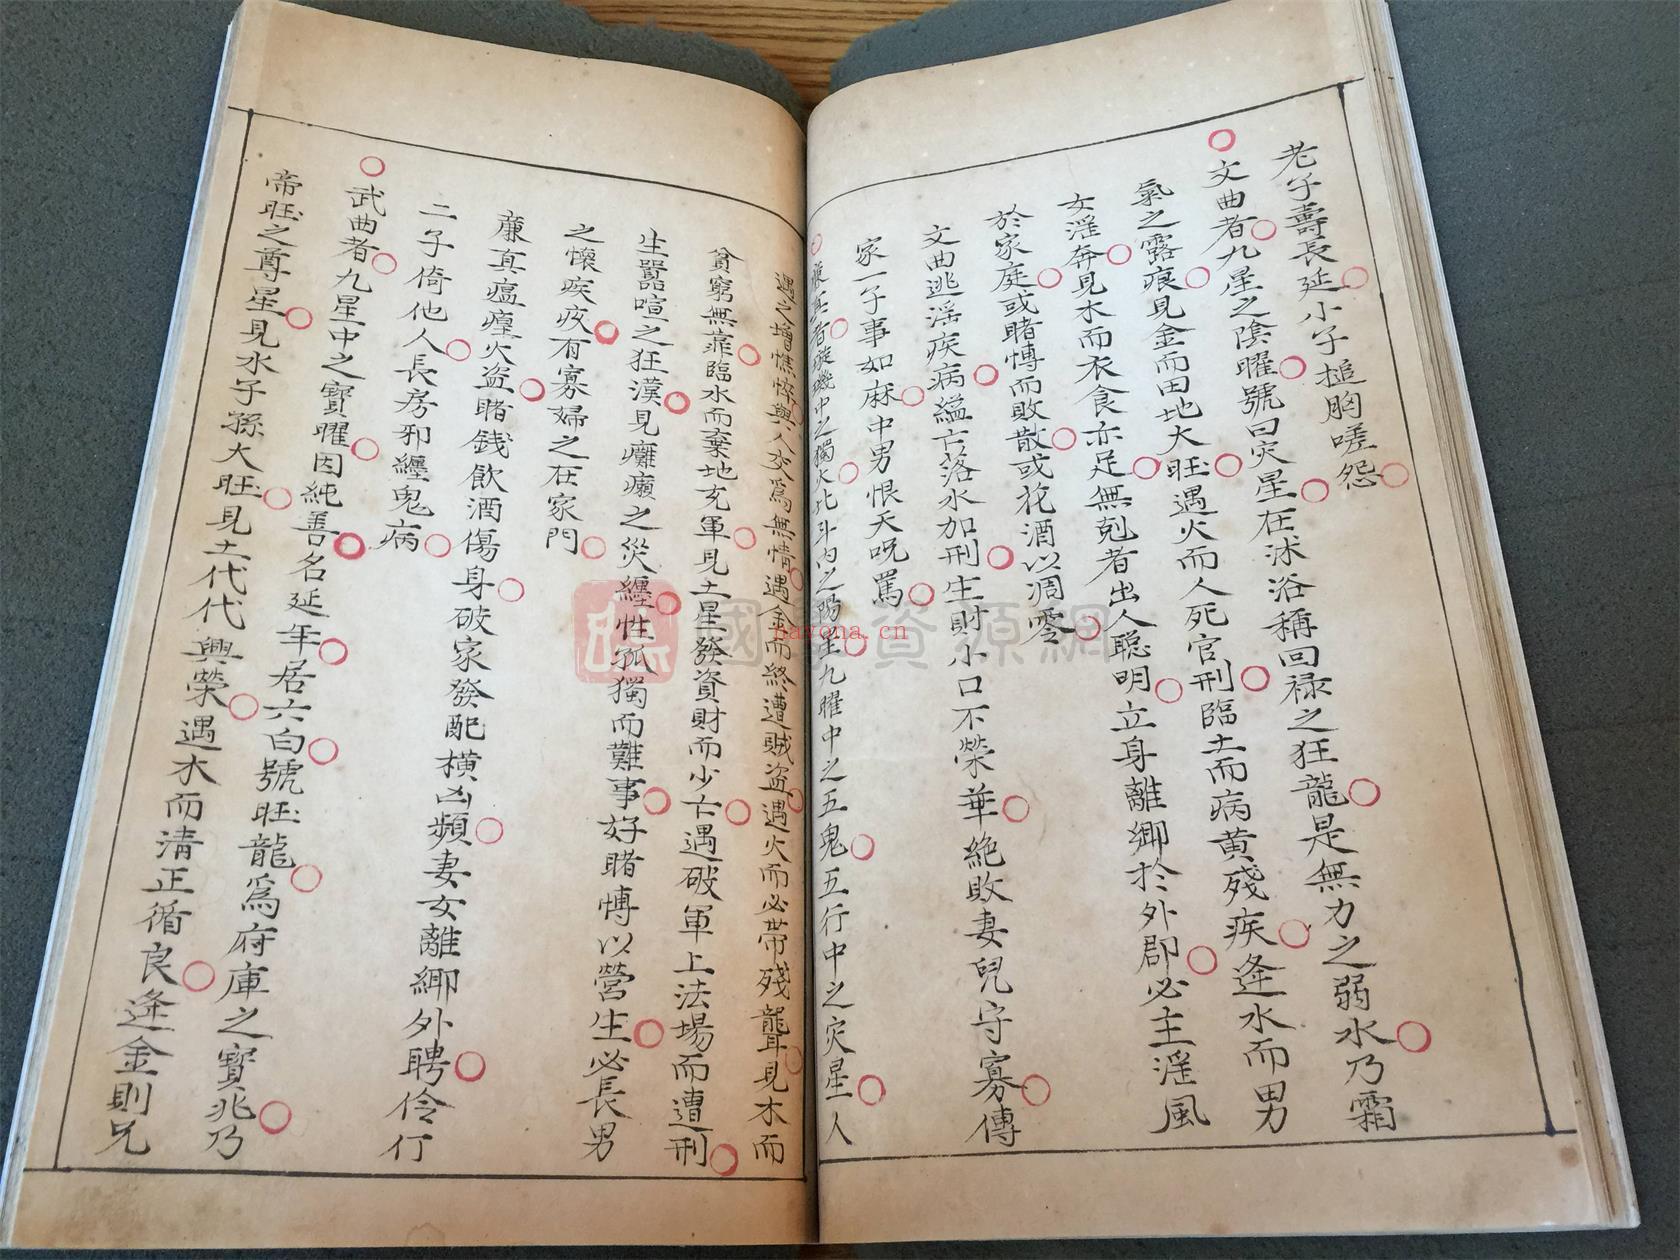 老子壽長延小子搥胸嗟怨
文曲者九星之陰曜號曰灾星在沭浴稱回禄之狂龍是無力之弱水乃霜
氣之露痕見金而田地大旺遇火而人死官刑臨土而病黄殘疾逢水而男
女淫奔見木而衣食亦足無剋者出人聰明立身離鄉於外郡必主淫風
於家庭或賭愽而敗散或花酒以凋零
文曲逃淫疾病縊亡落水加刑生財小口不榮華絶敗妻兒守寡傳
家一子事如麻中男恨天呪罵
廉真者璇璣中之獨火北斗内之陽星九曜中之五鬼五行中之灾星人
遇之增憔悴與人交爲無情遇金而終遭賊盗遇火而必帶殘聾見木而
貧窮無靠臨水而棄地充軍見土星發資財而少亡遇破軍上法場而遭刑
生嚚喧之狂漢見癱癩之災纏性孤獨而難事好賭愽以營生必長男
之懷疾疚有寡婦之在家門
廉真瘟瘽火盗賭錢飲酒傷身破家發配橫凶頻妻女離鄉外聘伶仃
二子倚他人長房邪纏鬼病
武曲者九星中之寶曜因純善名延年居六白號旺龍爲府庫之寶兆乃
帝旺之尊星見水子孫大旺見土代代興榮遇木而清正循良逢金則兄
國 資源網
nayona.cn